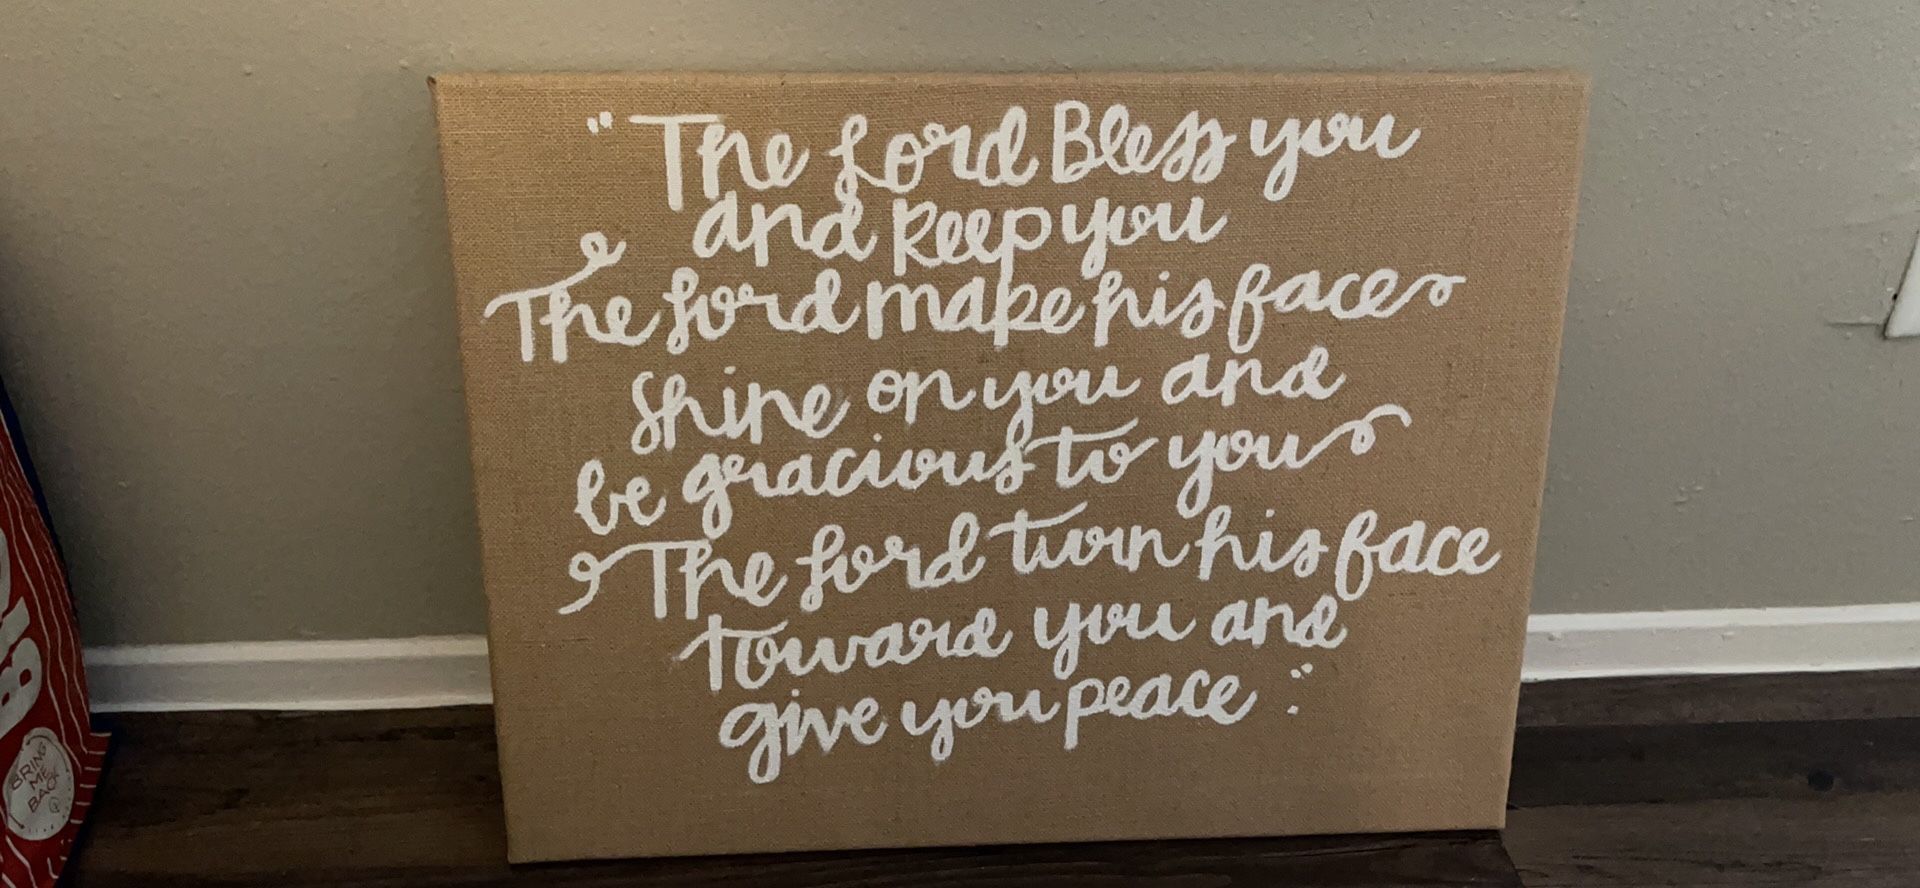 "The Lord Bless you
and keep you
The Lord make his face
shine on you and
be gracious to you
The Lord turn his face
toward you and
give you peace."
BRING
ME
BACK